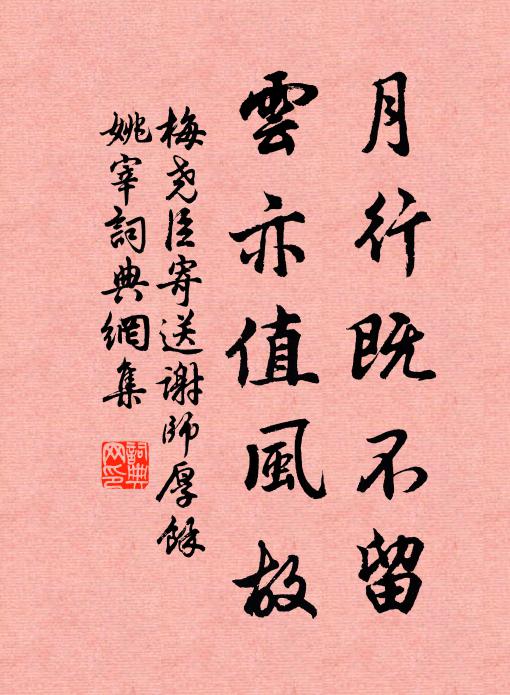 月行既不留
雲亦值風故
梅尧臣寄送谢師厚餘
姚宰詞典網集
詞典
网印